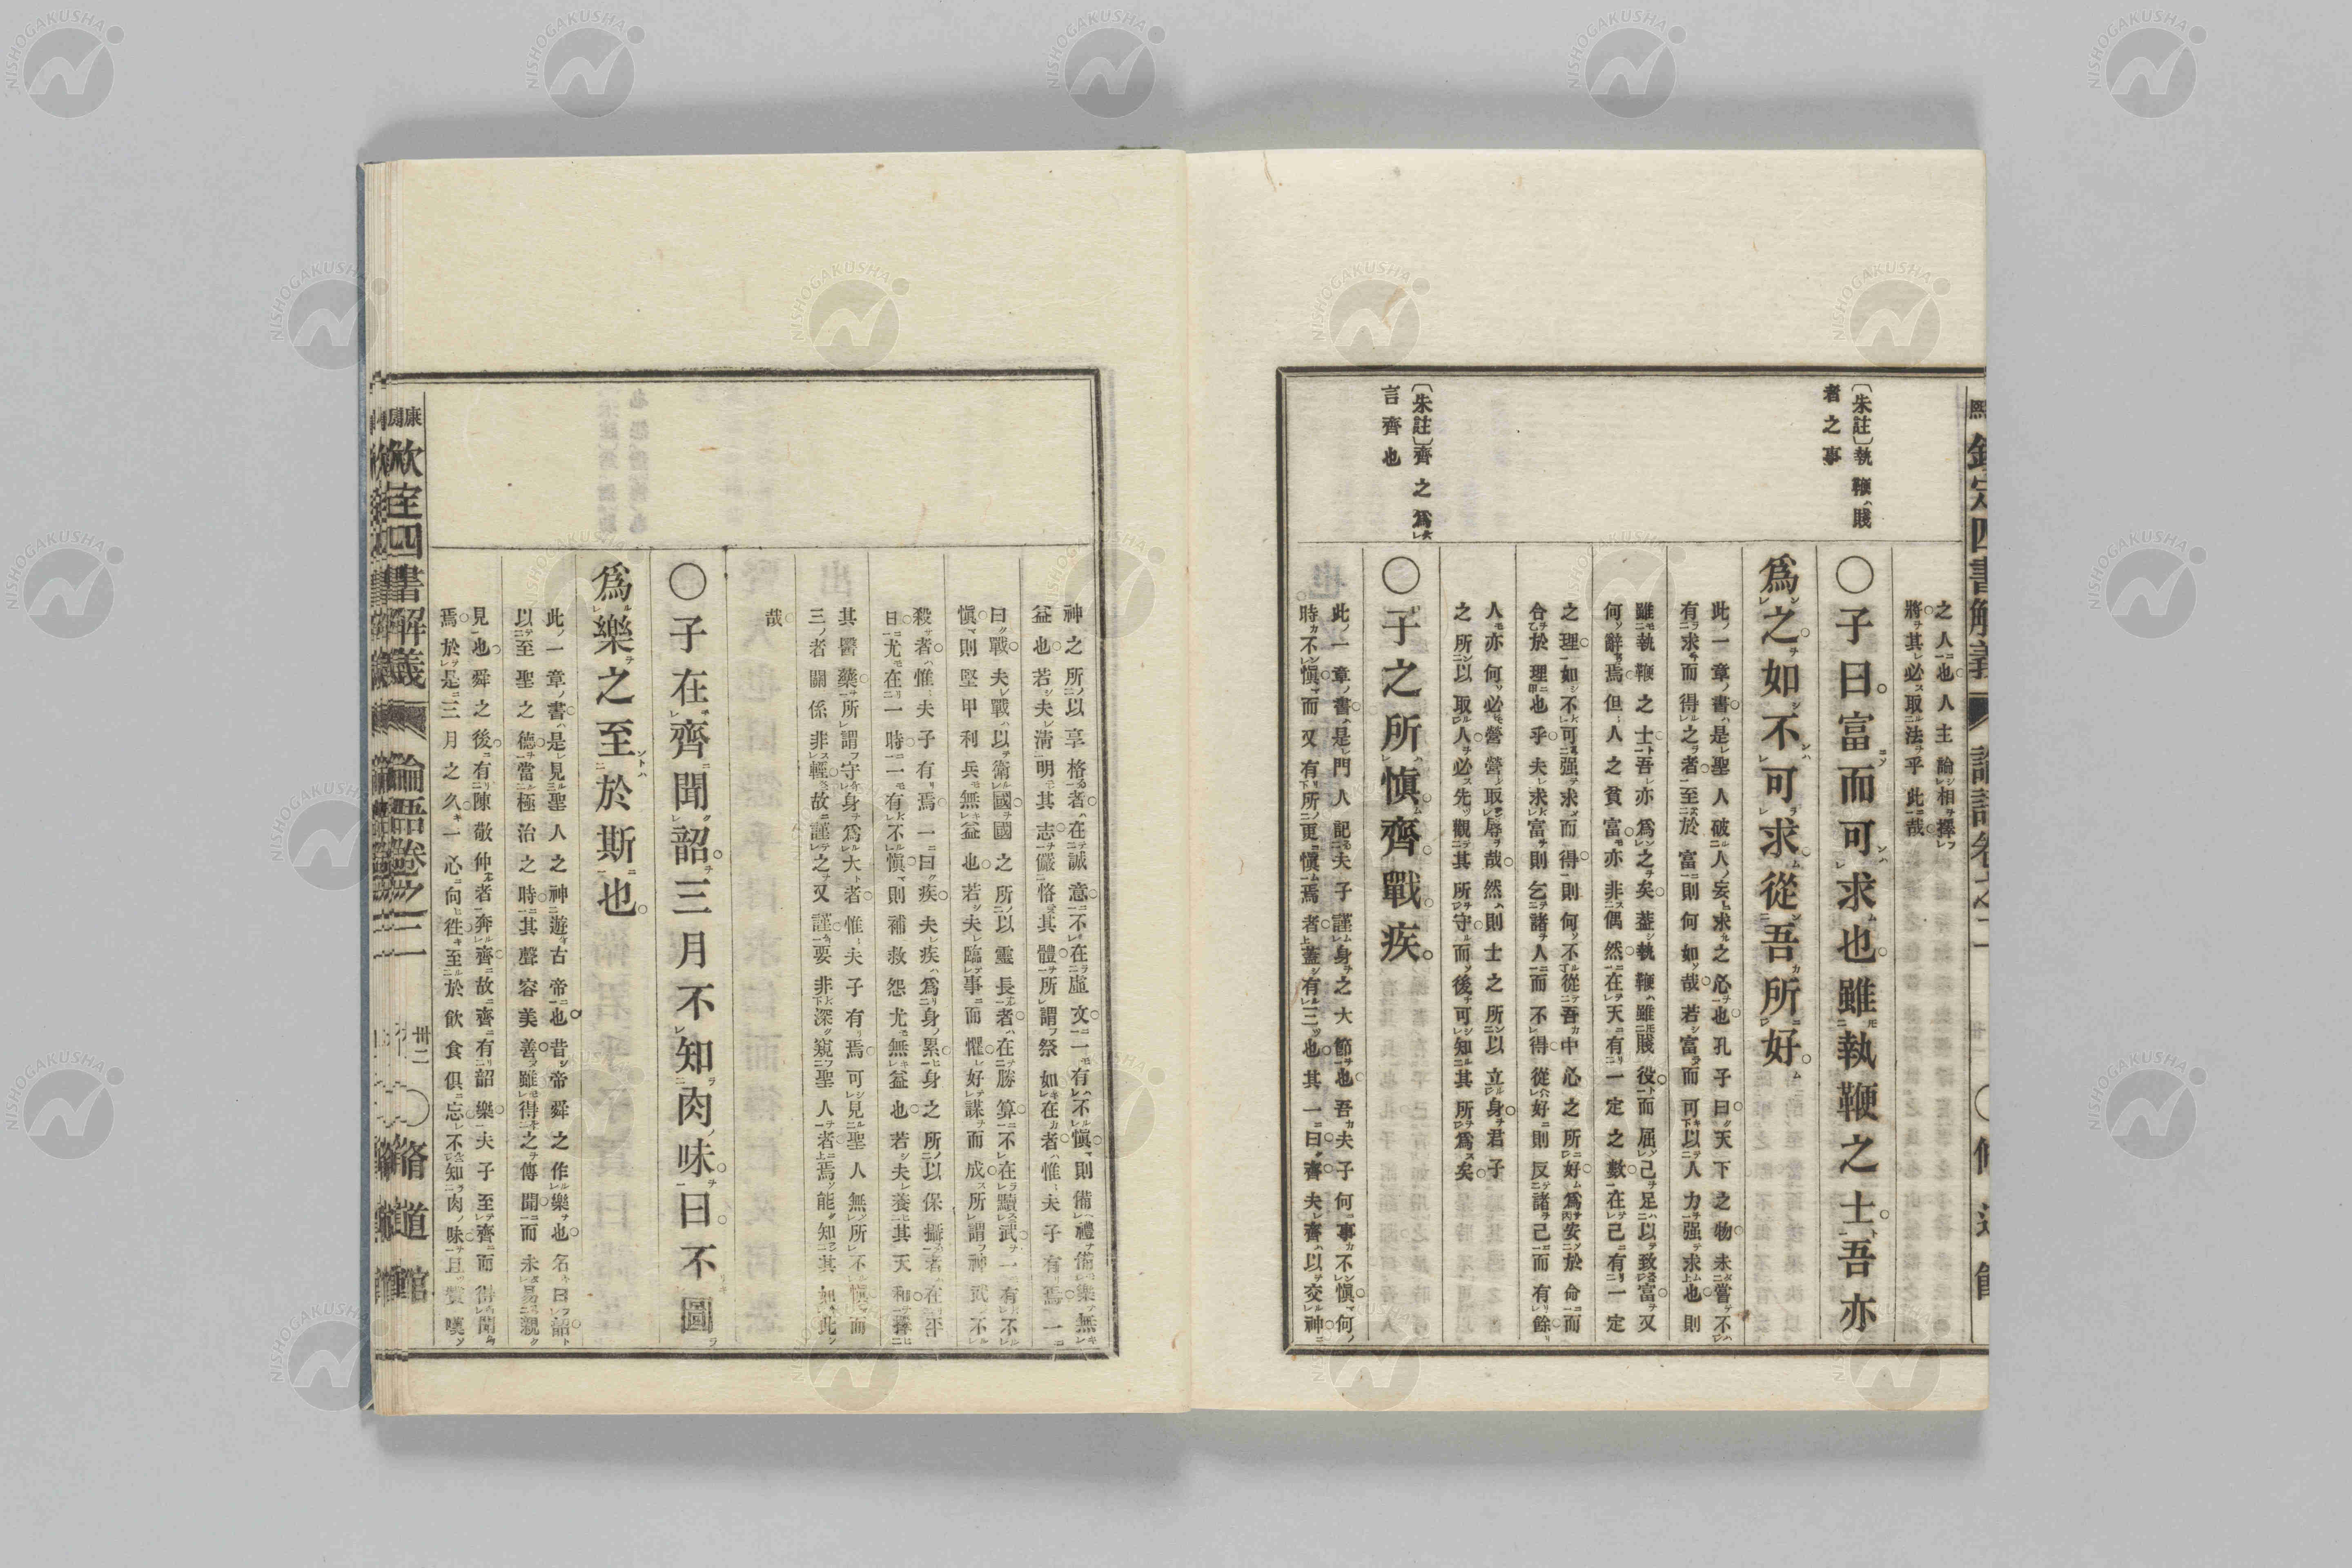 之人也人主論相擇
將其必取法乎此哉
〔朱註〕執鞭賤
者之事
〇子曰富而可求也雖執鞭之士吾亦
爲之如不可求從吾所好
此一章書是聖人破人妄求之必也孔子曰天下之物未嘗不
有求而得之者至於富則何如哉若富而可以人力强求也則
雖執鞭之士吾亦爲之矣蓋執鞭雖賤役而屈己足以致富又
何辭焉但人之貧富亦非偶然在天有一定之數在己有一定
之理如不可强求而得則何不從吾中心之所好爲安於命而
合於理也乎夫求富則乞諸人而不得從好則反諸己而有餘
人亦何必營營取辱哉然則士之所以立身君子
之所以取人必先觀其所守而後可知其所爲矣
〔朱註〕齊之爲
言齊也
〇子之所愼齊戰疾
此一章書是門人記夫子謹身之大節也吾夫子何事不愼何
時不愼而又有所更愼焉者蓋有三也其一曰齊夫齊以交神
神之所以享格者在誠意不在虛文一有不愼則備禮備樂無
益也若夫淸明其志嚴恪其體所謂祭如在者惟夫子有焉一
曰戰夫戰以衛國國之所以靈長者在勝算不在黷武一有不
愼則堅甲利兵無益也若夫臨事而懼好謀而成所謂神武不
殺者惟夫子有焉一曰疾夫疾爲身累身之所以保攝者在平
日尤在一時一有不愼則補救怨尤無益也若夫養其天和擇
其醫藥所謂守身爲大者惟夫子有焉可見聖人無所不愼而
三者關係非輕故謹之又謹要非深窺聖人者焉能知其如此
哉
〇子在齊聞韶三月不知肉味曰不圖
爲樂之至於斯也
此一章書是見聖人之神遊古帝也昔帝舜之作樂也名曰韶
以至聖之德當極治之時其聲容美善雖得之傳聞而未易親
見也舜之後有陳敬仲者奔齊故齊有韶樂夫子至齊而得聞
焉於是三月之久一心向往至於飮食俱忘不知肉味且贊嘆
欽定四書解義 論語卷之二 卅二 〇脩道館